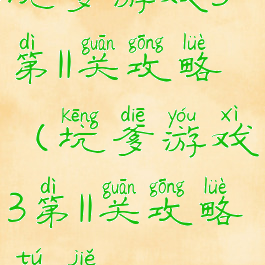 dì guān gōng lüè
第11关攻略
kēng diē yóu xì
(坑爹游戏
dì guān gōng lüè
3第11关攻略
tú jiě